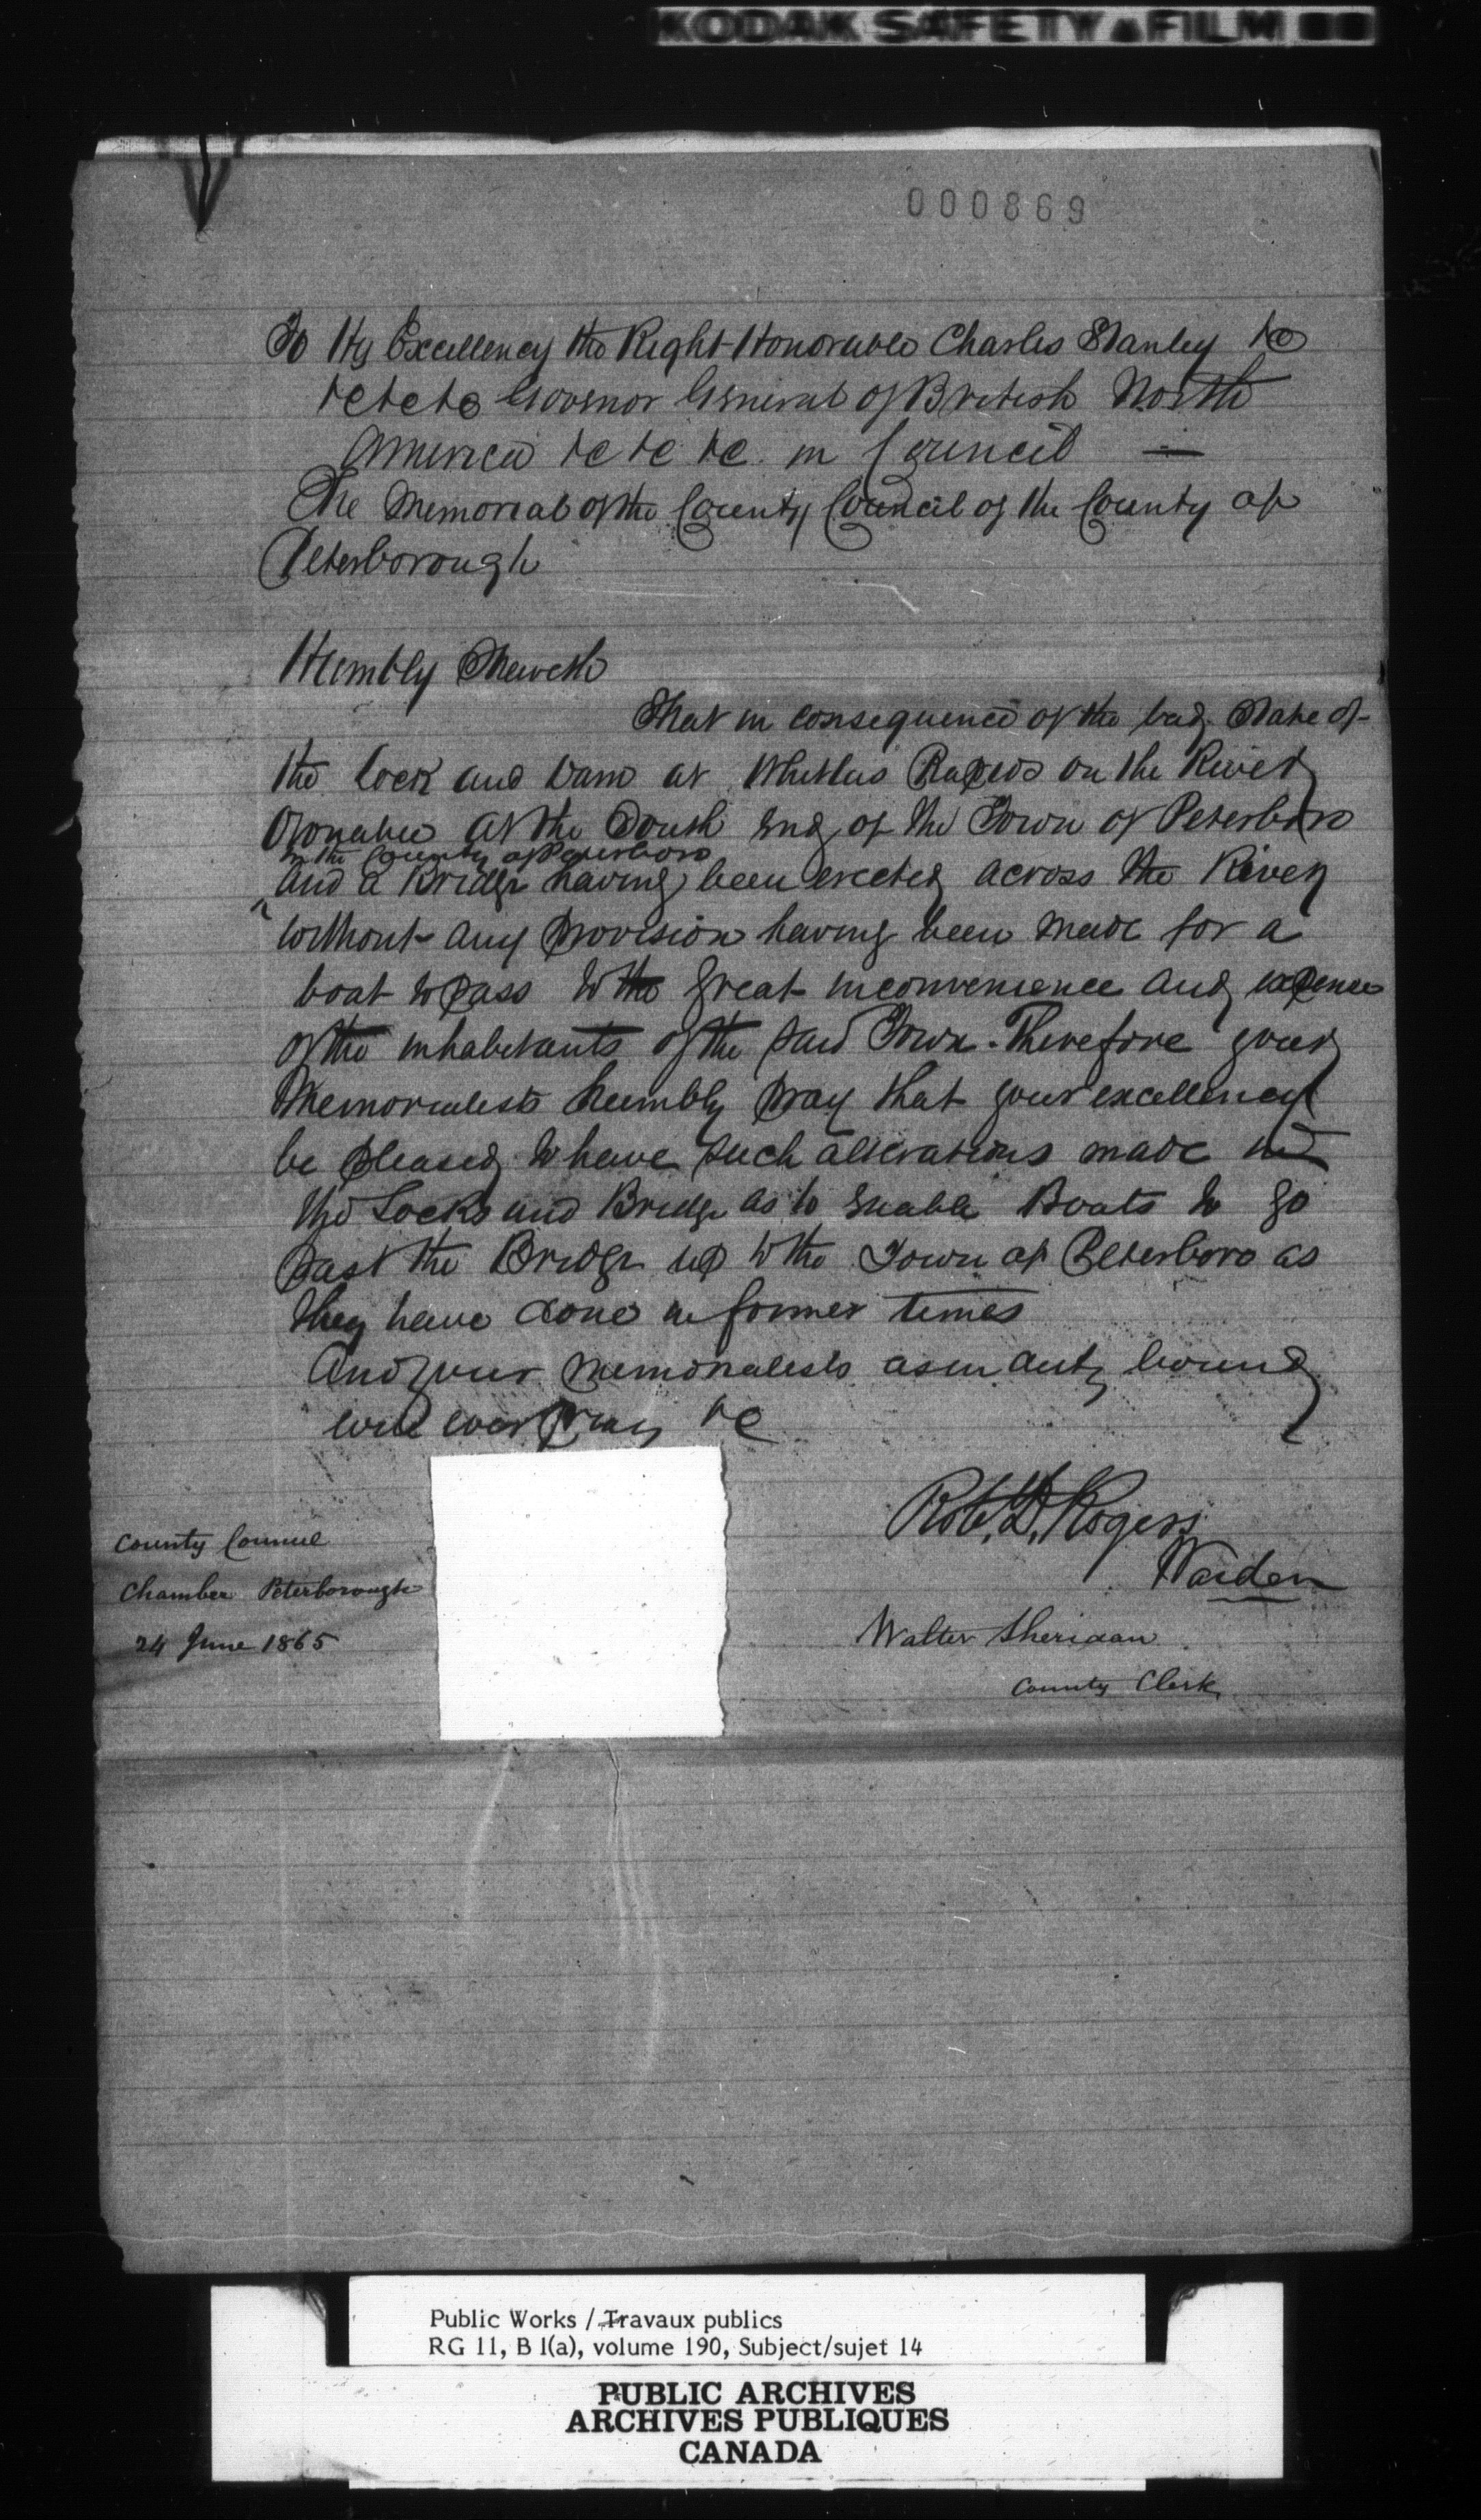 KODAK SAFETY FILM
000869
To His Excellency the Right Honorable Charles Stanley &c
&c &c &c Governor General of British North
America &c &c &c in Council —
The Memorial of the County Council of the County of
Peterborough
Humbly Sheweth
That in consequence of the bad State of
the lock and Dam at Whitlas Rapids on the River
Otonabee at the South End of the Town of Peterboro
in the County of Peterboro
and a Bridge having been erected across the River
without any provision having been made for a
boat to pass to the great inconvenience and expence
of the inhabitants of the said Town. Therefore your
Memorialists humbly pray that your excellency
be pleased to have such alterations made in
the Locks and Bridge as to enable Boats to go
past the Bridge up to the Town of Peterboro as
they have done in former times
And your memorialists as in duty bound
will ever pray &c
Robt. D. Rogers
Warden
County Council
Chamber Peterborough
24 June 1865
Walter Sheridan
County Clerk
Public Works / Travaux publics
RG 11, B 1(a), volume 190, Subject/sujet 14
PUBLIC ARCHIVES
ARCHIVES PUBLIQUES
CANADA